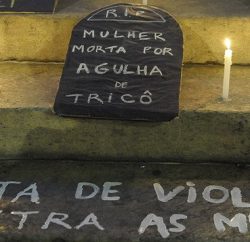 R.I.P.
MULHER
MORTA POR
AGULHA
DE
TRICÔ
TA DE VIOL
TRA AS M